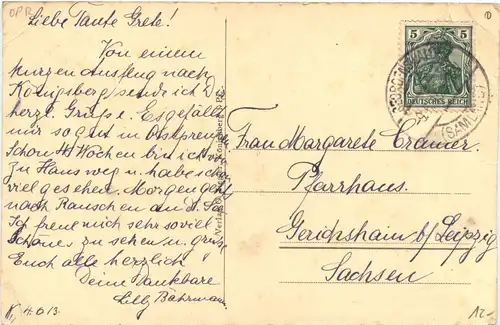 OPR
Liebe Tante Grete!
Von einem
kurzen Ausflug nach
Königsberg sende ich D
herzl. Grüße. Es gefällt
mir so gut in Ostpreu
Schon Wochen bin ich v
zu Haus weg u. habe scho
viel gesehen. Morgen geht
nach Rauschen an d. See
Ich freue mich sehr soviel
Schöne zu sehen u. grüße
Euch alle herzlich
Deine dankbare
Lilly Bährmann
K. 4.6.13.
5 5
DEUTSCHES REICH
(SAMLAND)
Frau Margarete Cramer
Pfarrhaus.
Gerichshain b/Leipzig
Sachsen
12.-